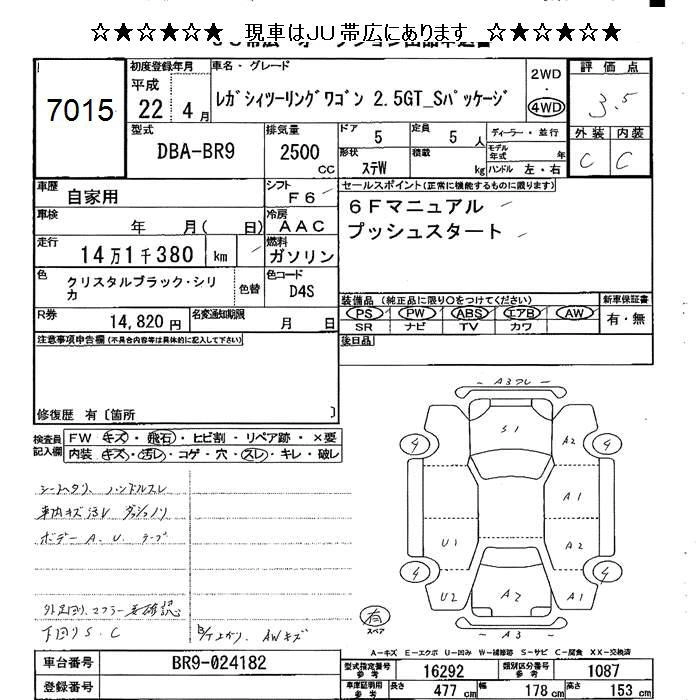 ☆★☆★☆★☆ 現車はJU帯広にあります ☆★☆★☆★☆
7015
初度登録年月
平成 22年 4月
車名・グレード
レガシィツーリングワゴン 2.5GT_Sパッケージ
2WD
4WD
評価点
3.5
外装 内装
C C
型式
DBA-BR9
排気量
2500 CC
ドア 5
定員 5人
ディーラー・並行
形状 ステW
積載 kg
モデル年式 年
ハンドル 左・右
車歴 自家用
シフト F6
車検 年 月( 日)
冷房 AAC
走行 14万1千380 km
燃料 ガソリン
色 クリスタルブラック・シリカ
色替
色コード D4S
R券 14,820円
名変通知期限 月 日
セールスポイント(正常に機能するものに限ります)
6Fマニュアル
プッシュスタート
装備品 (純正品に限り○をつけてください)
PS PW ABS エアB AW
SR ナビ TV カワ
新車保証書
有・無
後日品
注意事項申告欄(不具合内容等は具体的に記入して下さい)
修復歴 有〔箇所 〕
検査員記入欄
FW キズ・飛石・ヒビ割・リペア跡・×要
内装 キズ・汚レ・コゲ・穴・スレ・キレ・破レ
シートヘタリ、ハンドルスレ
車内キズ汚レ ダッシュノリ
ボデー A、U、テープ
外足回リ、マフラー要確認
下回りS、C
AWキズ
A3ワレ
S1
A2
A1
A2
A1
U1
U2
A2
A3
4
4
4
4
有
スペア
A-キズ E-エクボ U-凹み W-補修跡 S-サビ C-腐食 XX-交換済
車台番号 BR9-024182
登録番号
型式指定番号 参考 16292
類別区分番号 参考 1087
車庫証明用 参考 長さ 477cm 幅 178cm 高さ 153cm